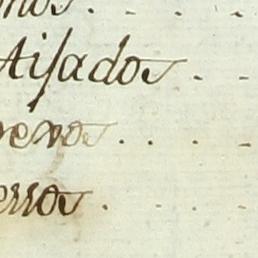 nos. . . .
Aisados . .
revos . . .
erros . . .